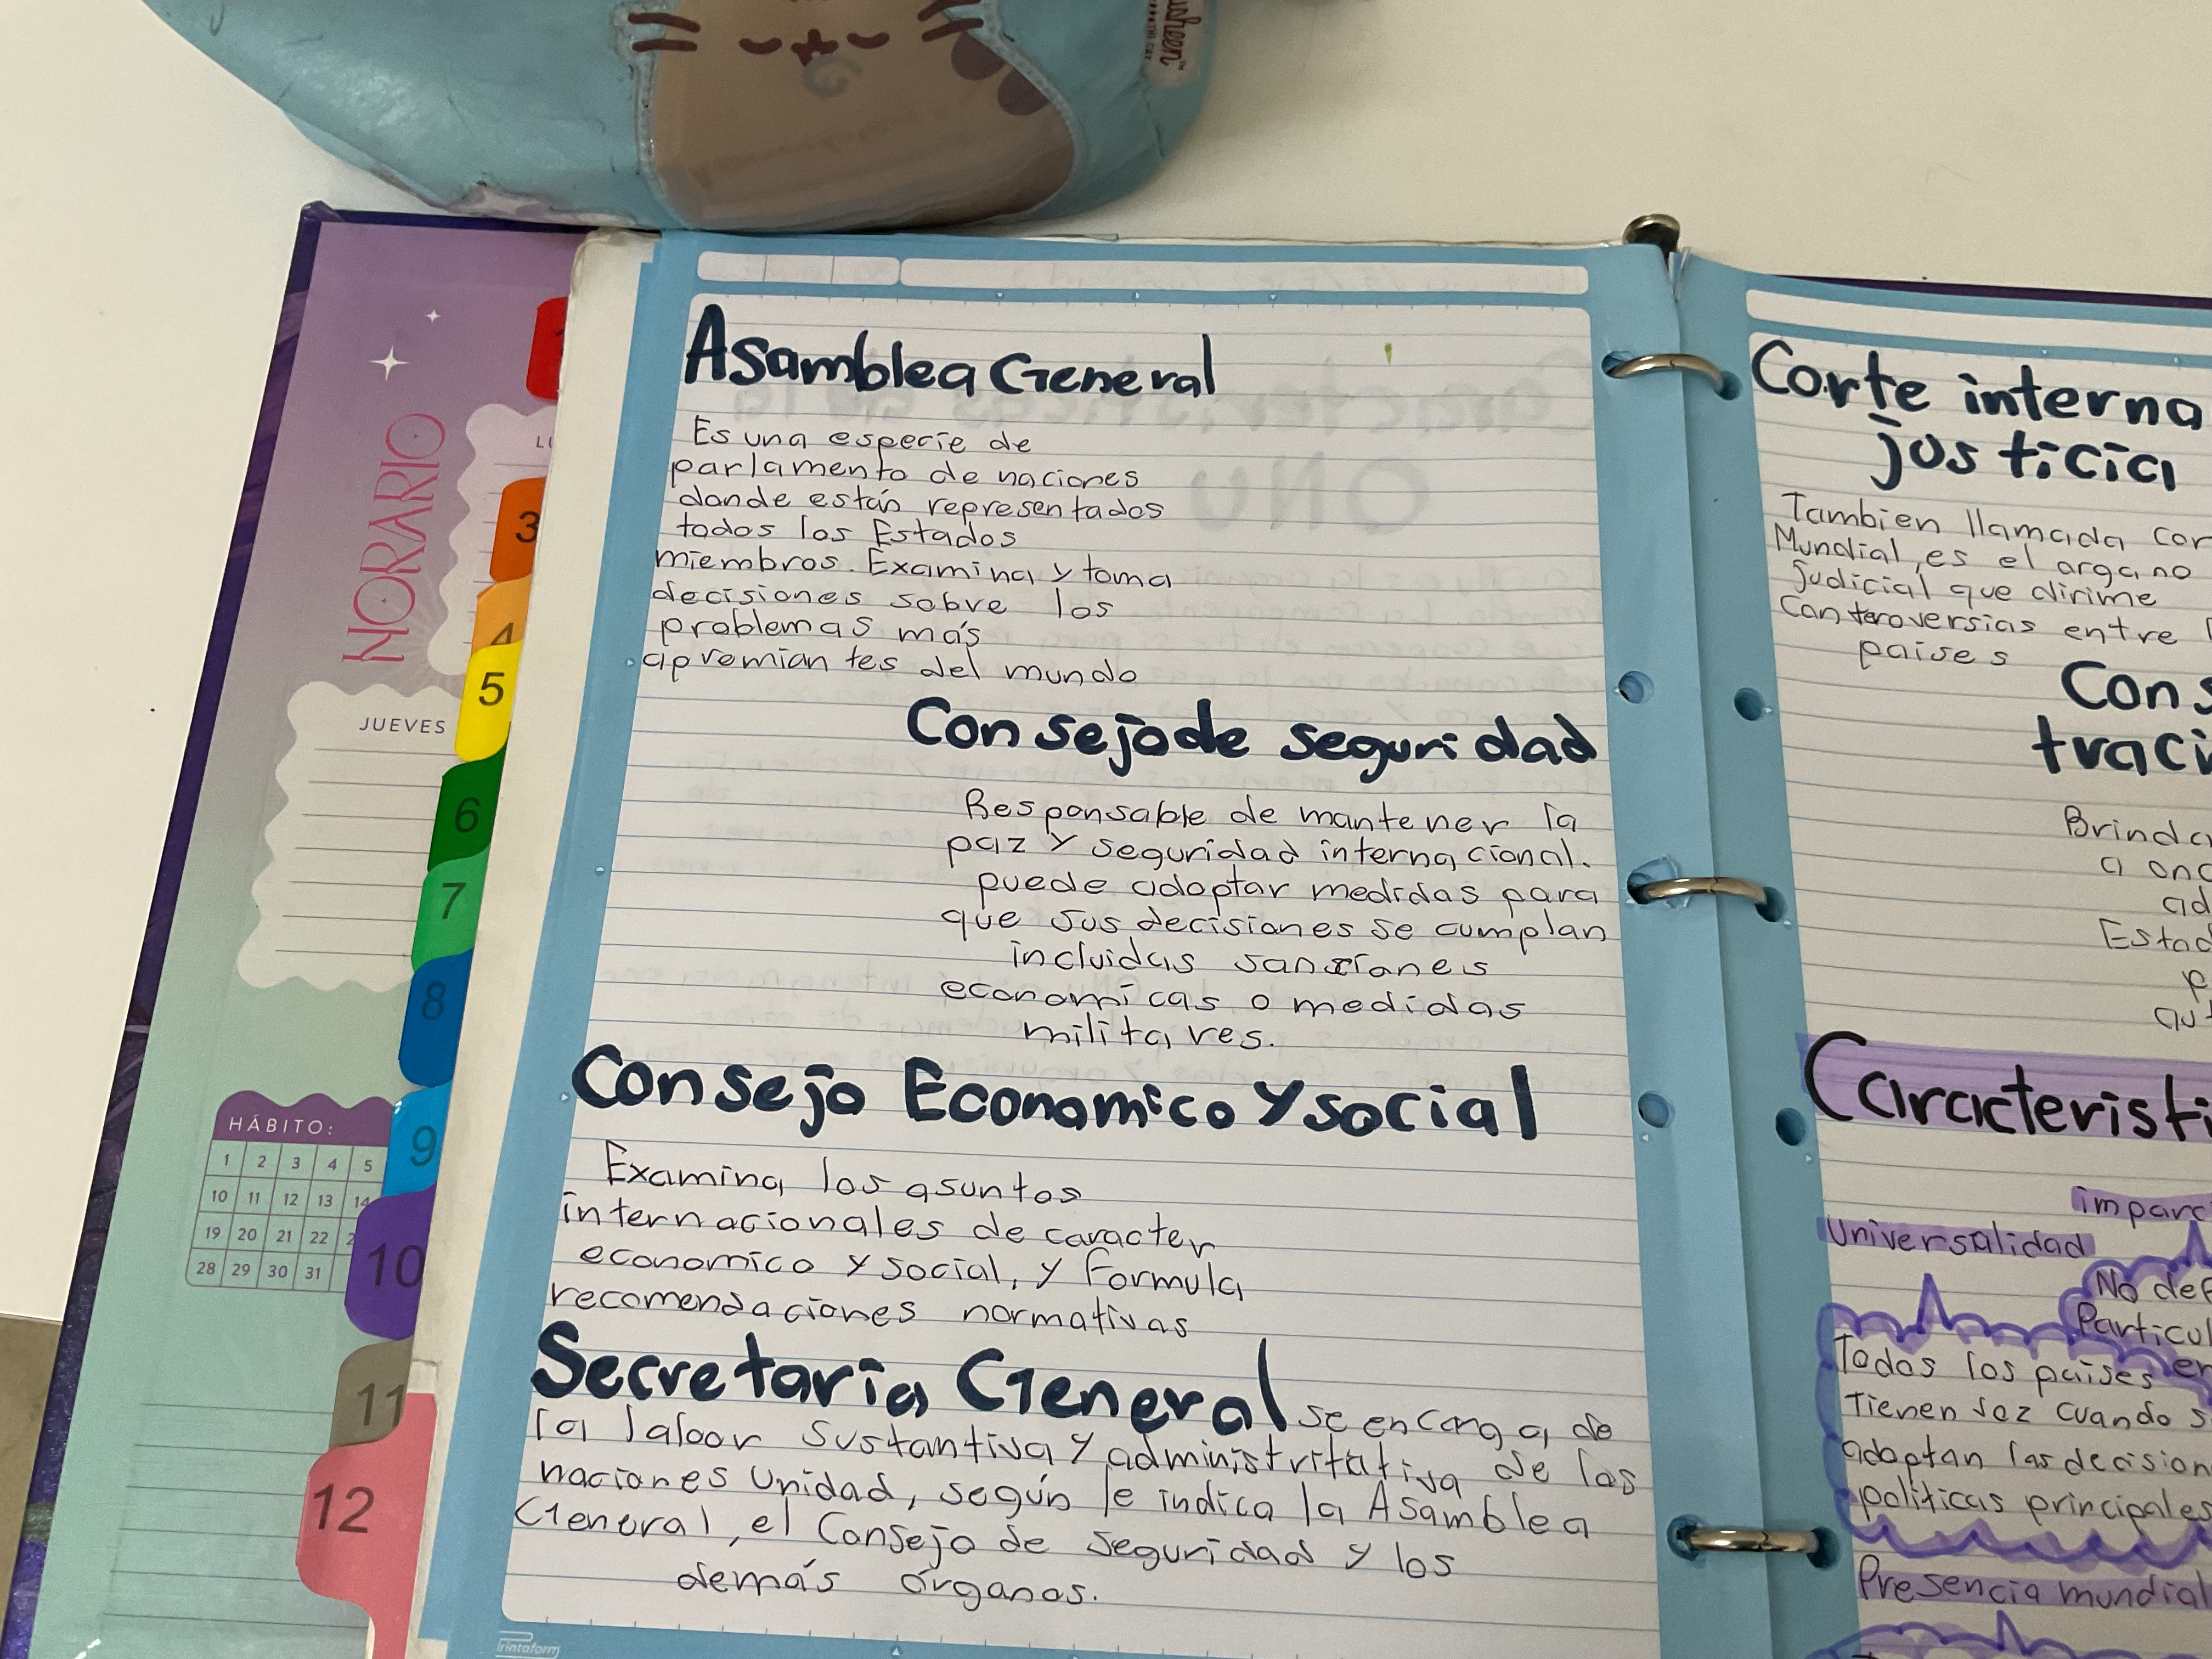 Asamblea General
Es una especie de
parlamento de naciones
donde están representados
todos los Estados
miembros. Examina y toma
decisiones sobre los
problemas más
apremiantes del mundo
Consejo de seguridad
Responsable de mantener la
paz y seguridad internacional.
puede adoptar medidas para
que sus decisiones se cumplan
incluidas sanciones
economicas o medidas
militares.
Consejo Economico y social
Examina los asuntos
internacionales de caracter
economico y social, y formula
recomendaciones normativas
Secretaria General se encarga de
la labor sustantiva y administritativa de las
naciones Unidad, según le indica la Asamblea
General, el Consejo de seguridad y los
demás órganos.
Printaform
Corte interna
justicia
Tambien llamada cor
Mundial, es el organo
judicial que dirime
Controversias entre
paises
Cons
traci
Brinda
a onc
ad
Estad
p
aut
Caracteristi
imparc
Universalidad
No def
Particul
en
Todos los paises
Tienen voz cuando s
adoptan las decision
políticas principales
Presencia mundial
HORARIO
LU
JUEVES
HÁBITO:
1 2 3 4 5
10 11 12 13 14
19 20 21 22 2
28 29 30 31
3
4
5
6
7
8
9
10
11
12
usheen